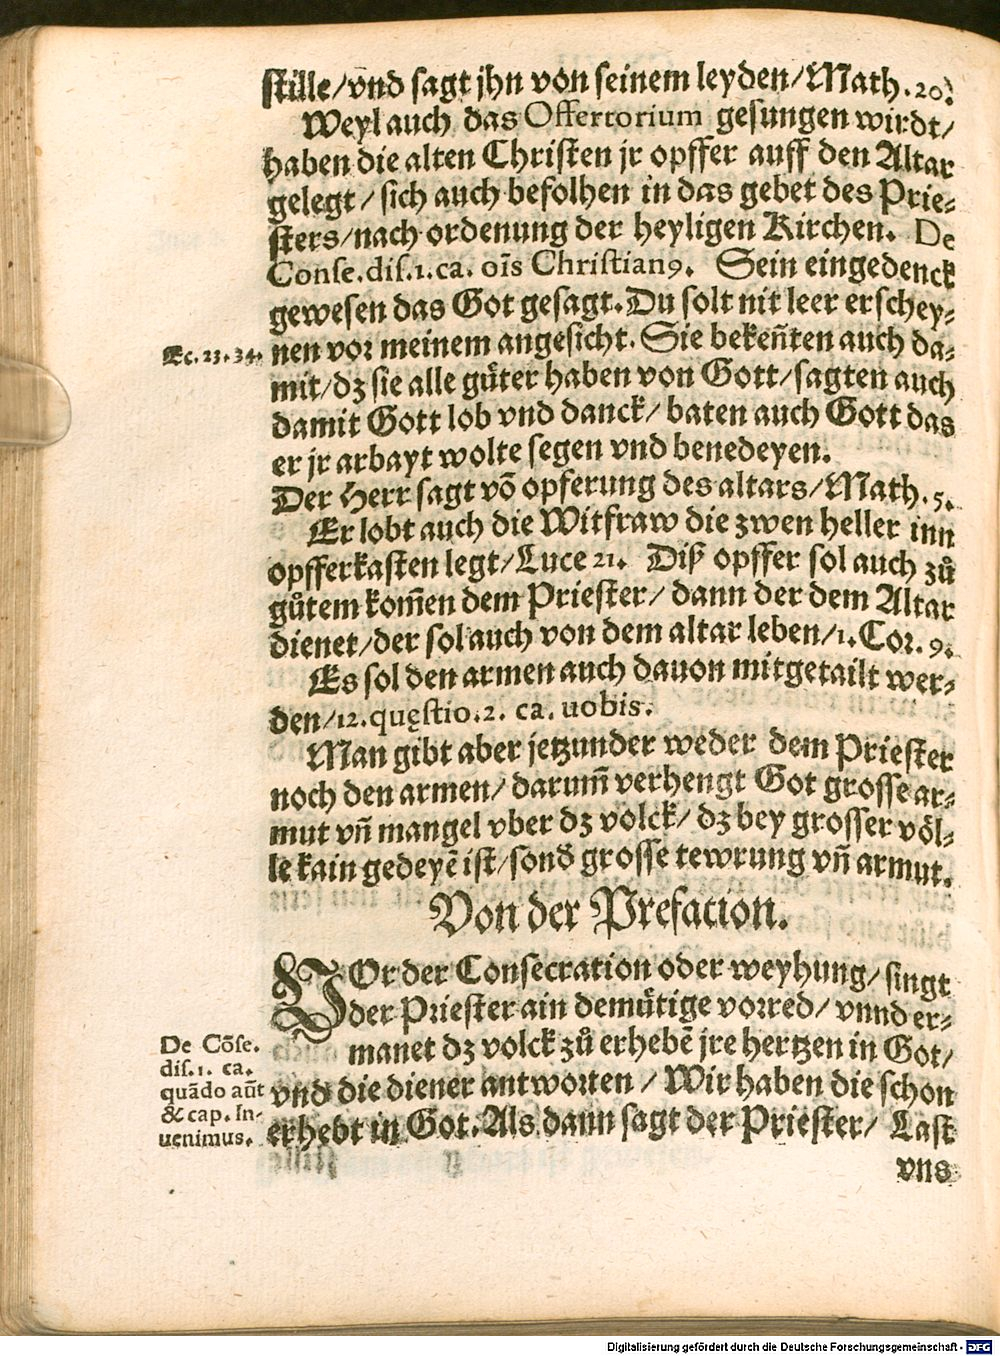 stille/vnd sagt jhn von seinem leyden/Math.20.
Weyl auch das Offertorium gesungen wirdt/
haben die alten Christen jr opffer auff den Altar
gelegt/sich auch befolhen in das gebet des Prie-
sters/nach ordenung der heyligen Kirchen. De
Conse.dis.1.ca. oīs Christian9. Sein eingedenck
gewesen das Got gesagt. Du solt nit leer erschey-
Ec. 23. 34.
nen vor meinem angesicht. Sie bekeñten auch da-
mit/dz sie alle gůter haben von Gott/sagten auch
damit Gott lob vnd danck/baten auch Gott das
er jr arbayt wolte segen vnd benedeyen.
Der Herr sagt võ opferung des altars/Math.5.
Er lobt auch die Witfraw die zwen heller inn
opfferkasten legt/Luce 21. Diß opffer sol auch zů
gůtem kom̃en dem Priester/dann der dem Altar
dienet/der sol auch von dem altar leben/1.Cor.9.
Es sol den armen auch dauon mitgetailt wer-
den/12.quęstio.2. ca. uobis.
Man gibt aber jetzunder weder dem Priester
noch den armen/darum̃ verhengt Got grosse ar-
mut vñ mangel vber dz volck/dz bey grosser völ-
le kain gedeyẽ ist/sonđ grosse tewrung vñ armut.
Von der Prefation.
VOr der Consecration oder weyhung/singt
der Priester ain demütige vorred/vnnd er-
manet dz volck zů erhebẽ jre hertzen in Got/
vnd die diener antworten/Wir haben die schon
erhebt in Got. Als dann sagt der Priester/ Last
De Cõse.
dis.1. ca.
quādo aūt
& cap. In-
uenimus.
vns
Digitalisierung gefördert durch die Deutsche Forschungsgemeinschaft - DFG